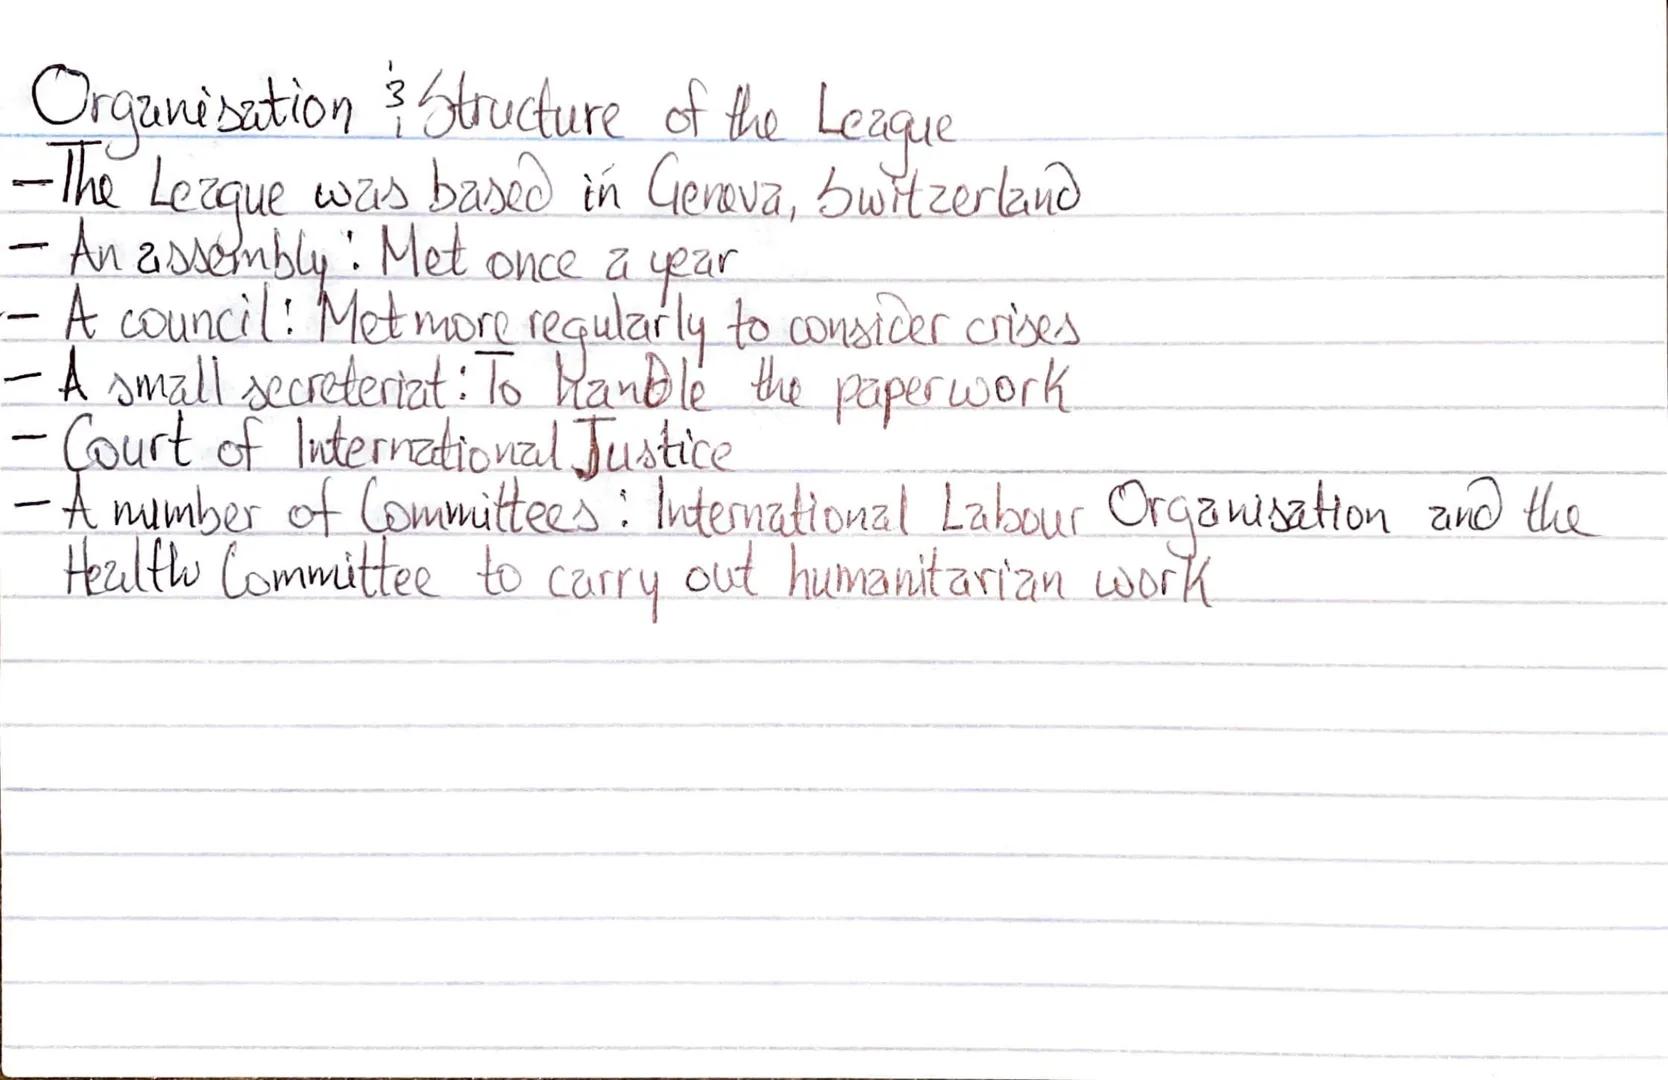 Organisation & Structure of the League
- The League was based in Geneva, Switzerland
- An assembly: Met once a year
- A council: Met more regularly to consider crises
- A small secreteriat: To Handle the paperwork
- Court of International Justice
- A number of Committees: International Labour Organisation and the
Health Committee to carry out humanitarian work